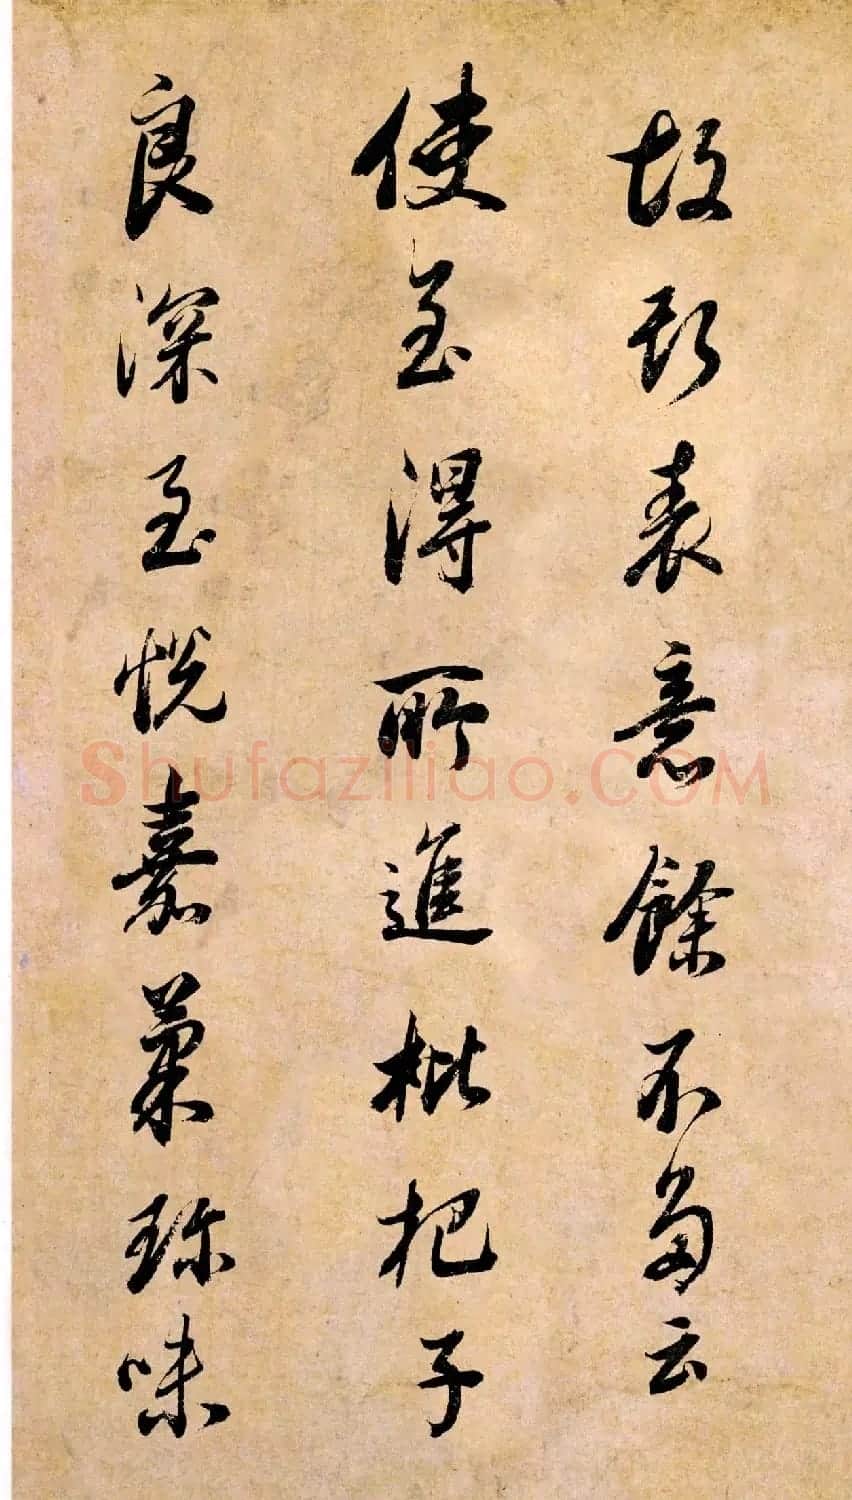 故斯表意餘不多云
使至得所進枇杷子
良深至悦嘉菓珍味
Shufaziliao.COM